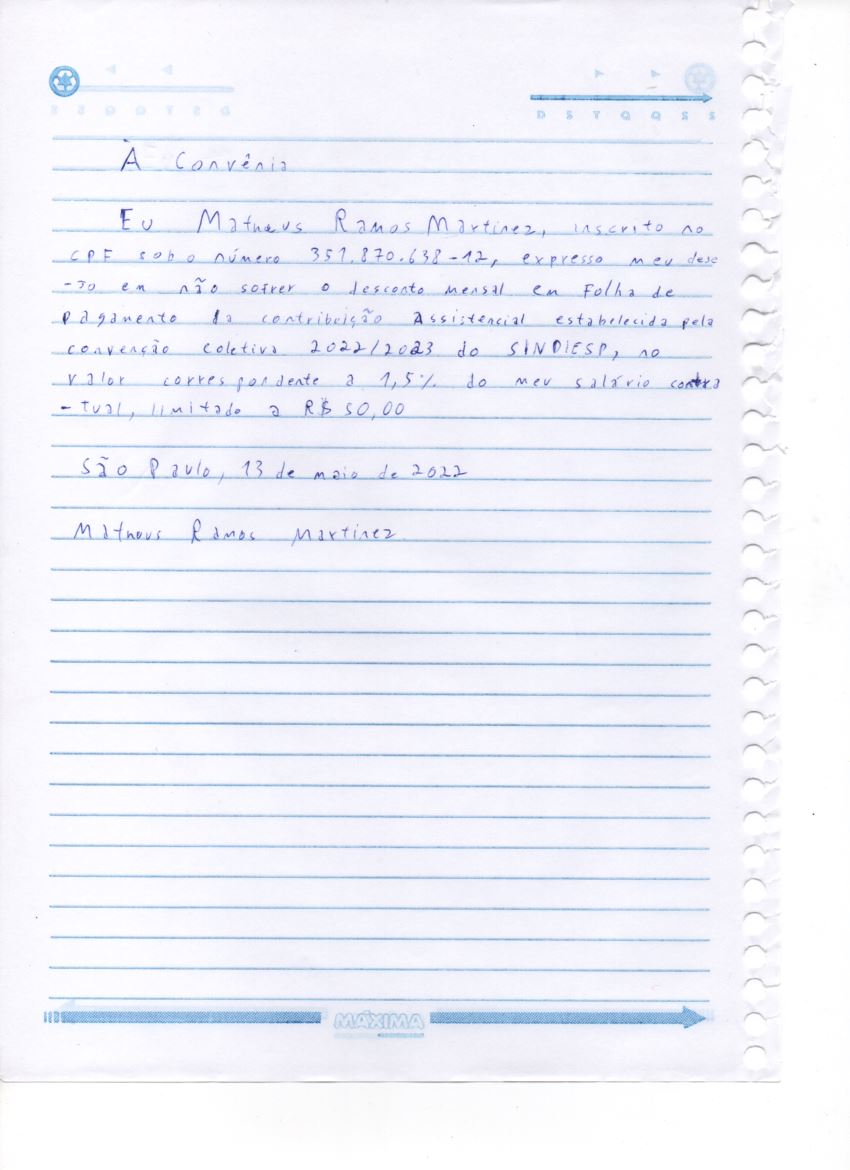 D S T Q Q S S
D S T Q Q S S
À Convênia
Eu Matheus Ramos Martinez, inscrito no
CPF sob o número 351.870.638-12, expresso meu dese
-jo em não sofrer o desconto mensal em Folha de
pagamento da contribuição Assistencial estabelecida pela
convenção coletiva 2022/2023 do SINDIESP, no
valor correspondente a 1,5% do meu salário contra
-tual, limitado a R$ 50,00
São Paulo, 13 de maio de 2022
Matheus Ramos Martinez
MÁXIMA